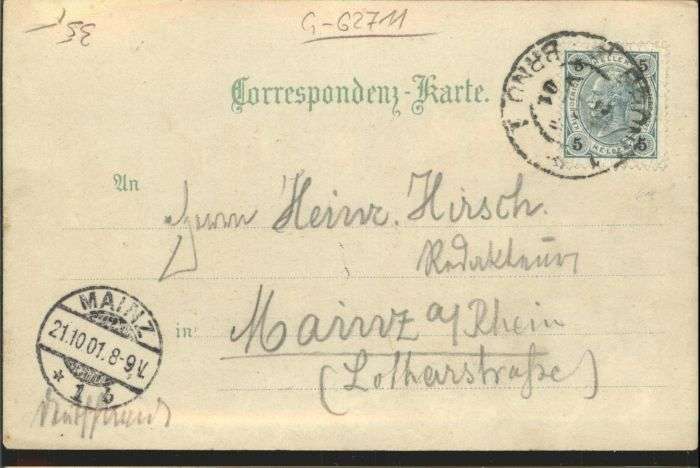 35,-
G-62711
Correspondenz-Karte.
BRNO
5 5
5 HELLER 5
An Herrn Heinz. Hirsch.
Redakteur
in: Mainz a/Rhein
(Lotharstraße)
MAINZ
21.10.01.8-9V.
* 1 b
Deutschland